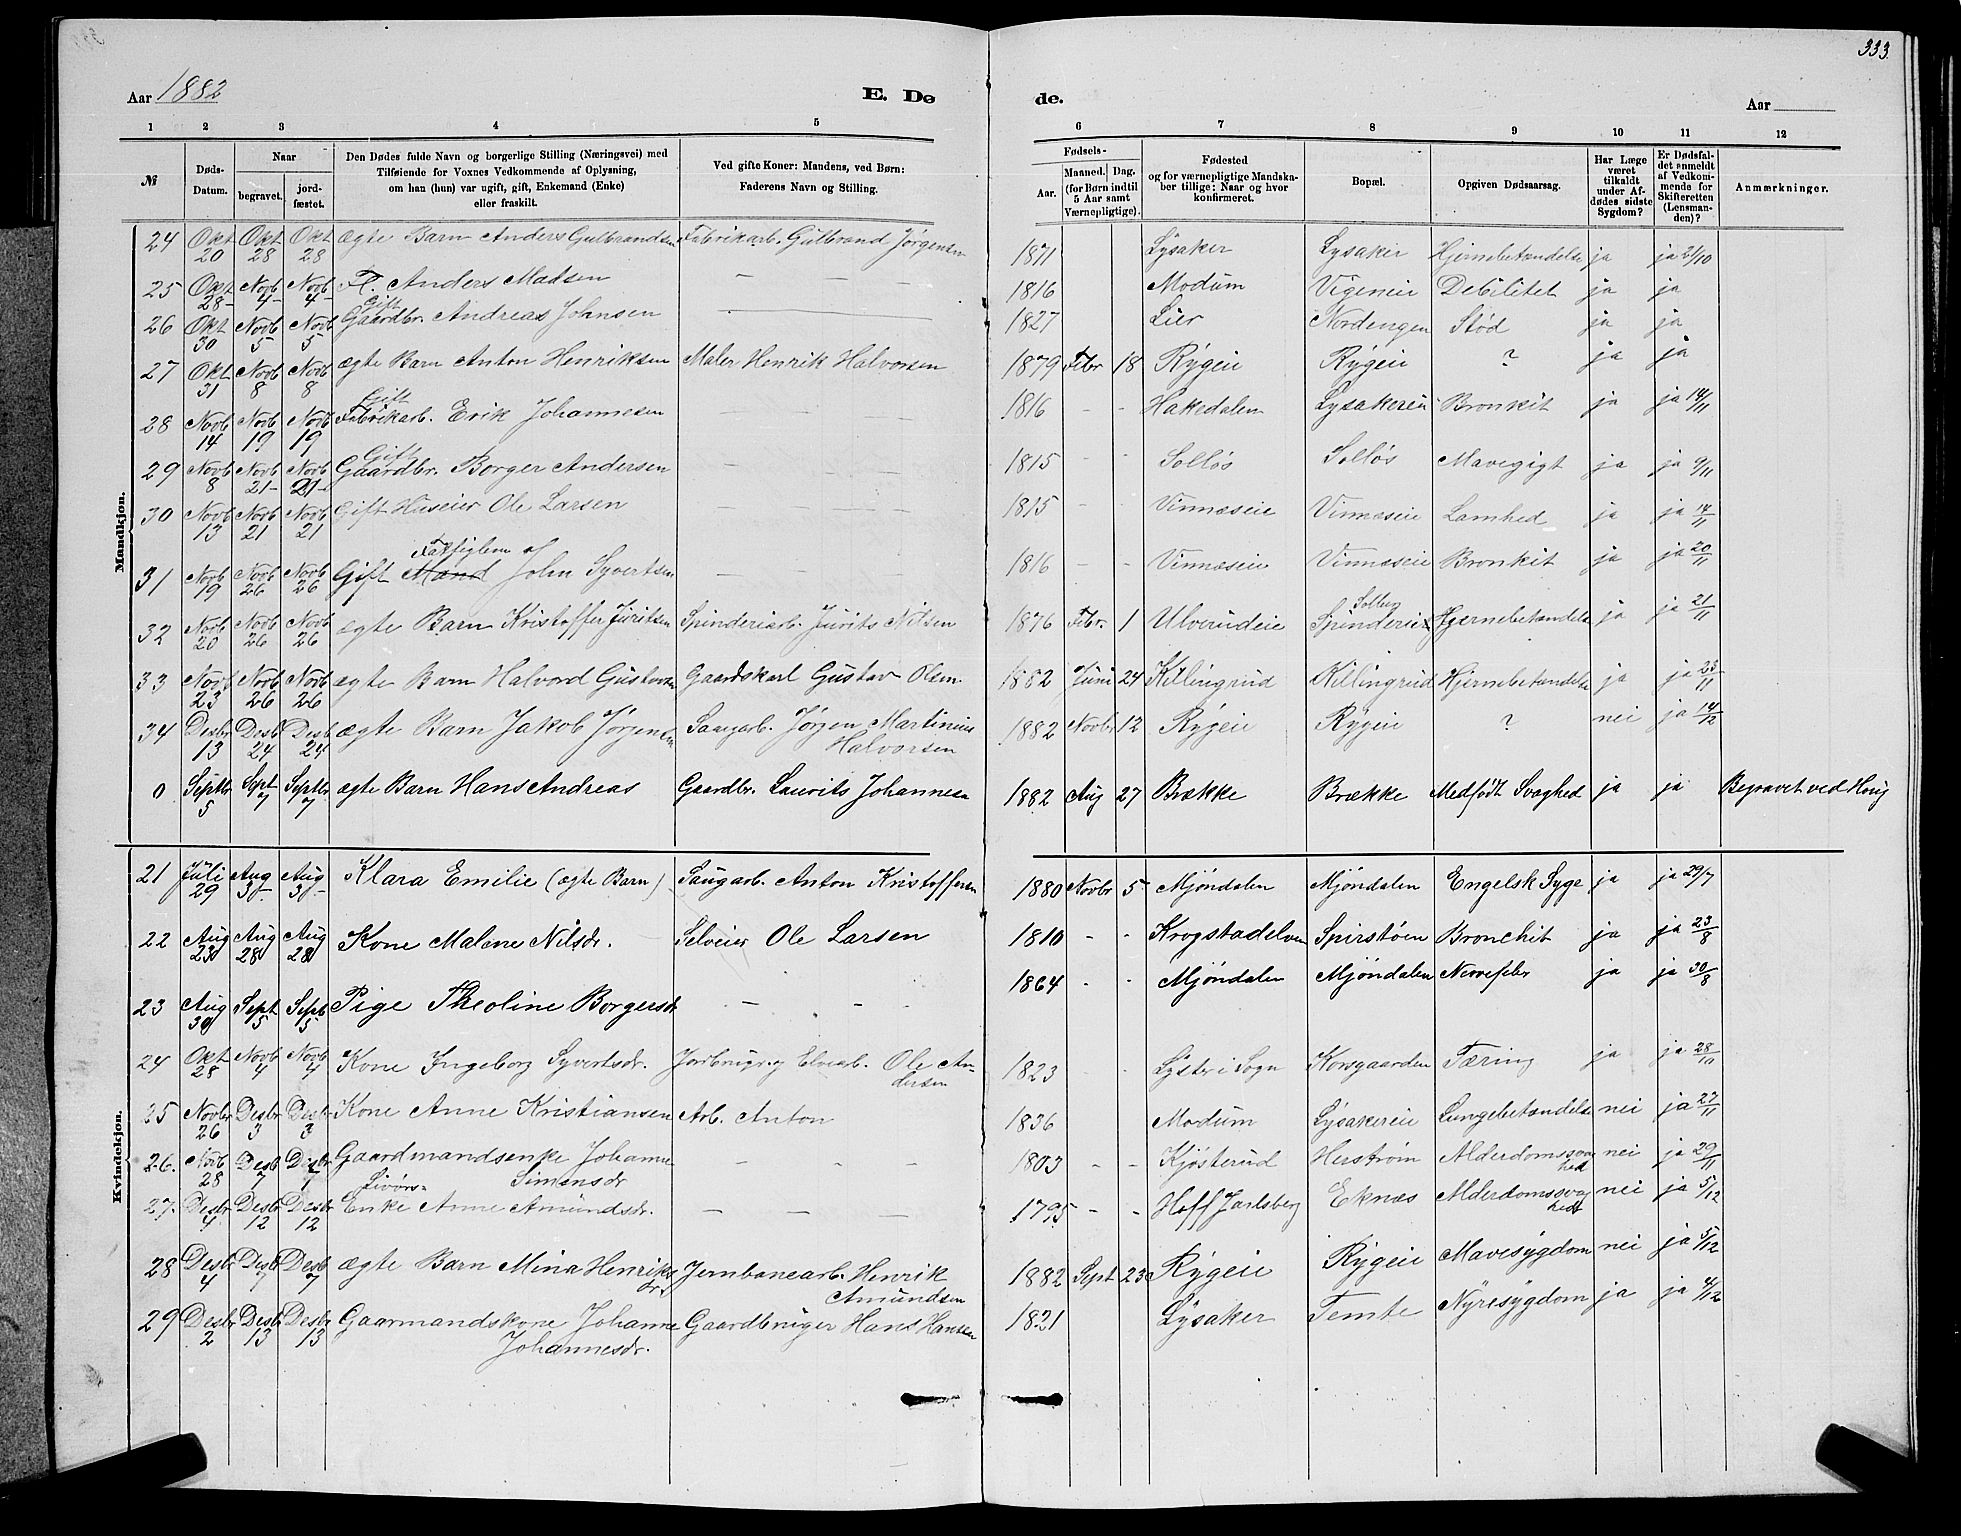 333.
Aar 1882 E. Dø de. Aar
1 2 3 4 5 6 7 8 9 10 11 12
№ Døds-Datum. Naar begravet. jordfæstet. Den Dødes fulde Navn og borgerlige Stilling (Næringsvei) med Tilføiende for Voxnes Vedkommende af Oplysning, om han (hun) var ugift, gift, Enkemand (Enke) eller fraskilt. Ved gifte Koner: Mandens, ved Børn: Faderens Navn og Stilling. Fødsels- Aar. Maaned. Dag. (for Børn indtil 5 Aar samt Værnepligtige). Fødested og for værnepligtige Mandskaber tillige: Naar og hvor konfirmeret. Bopæl. Opgiven Dødsaarsag. Har Læge været tilkaldt under Afdødes sidste Sygdom? Er Dødsfaldet anmeldt af Vedkommende for Skifteretten (Lensmanden)? Anmærkninger.
Mandkjøn.
24 Okt 20 Okt 28 Okt 28 ægte Barn Anders Gulbrandsen Fabrikarb. Gulbrand Jørgensen 1871 Lysaker Lysaker Hjernebetændelse ja ja 21/10
25 Okt 28 Novb 4 Novb 4 Fl. Anders Madsen — — 1816 Modum Vigeneie Debilitet ja ja
26 Okt 30 Novb 5 Novb 5 Gift Gaardbr. Andreas Johnsen 1827 Lier Nordengen Stød ja ja
27 Okt 31 Novb 8 Novb 8 ægte Barn Anton Henriksen Maler Henrik Halvorsen 1879 Febr 18 Rygeie Rygeie ? ja ja
28 Novb 14 Novb 19 Novb 19 Gift Fabrikarb. Erik Johannesen — — — 1816 - - Hakedalen Lysakereie Bronkit ja ja 14/11
29 Novb 8 Novb 21 Novb 21 Gift Gaardbr. Borger Andersen — — — 1815 - - Solløs Solløs Mavegigt ja ja 9/11
30 Novb 13 Novb 21 Novb 21 Gift Huseier Ole Larsen — — — 1815 - - Vinnæseie Vinnæseie Lamhed ja ja 14/11
31 Novb 19 Novb 26 Novb 26 Gift Mand John Syvertsen — — 1816 - - Vinnæseie Vinnæseie Bronkit ja ja 20/11
32 Novb 20 Novb 26 Novb 26 ægte Barn Kristoffer Juritsen Spinderiarb. Jurits Nilsen 1876 Febr. 1 Ulverudeie Spinderiet Hjernebetændelse ja ja 21/11
33 Novb 23 Novb 26 Novb 26 ægte Barn Halvord Gustavsen Gaardskarl Gustav Olsen 1882 Juni 24 Killingrud Killingrud Hjernebetændelse ja ja 23/11
34 Desbr 13 Desb 24 Desb 24 ægte Barn Jakob Jørgensen Saugarb. Jørgen Martinius Halvorsen 1882 Novbr 12 Rygeie Rygeie ? nei ja 14/12
0 Septbr 5 Sept 7 Septbr 7 ægte Barn Hans Andreas Gaardbr. Laurits Johannesen 1882 Aug 27 Brække Brække Medfødt Svaghed ja ja Begravet ved Houg
Kvindekjøn.
21 Juli 29 Aug 3 Aug 3 Klara Emilie (ægte Barn) Saugarb. Anton Kristoffersen 1880 Novbr 5 Mjøndalen Mjøndalen Engelsk Syge ja ja 29/7
22 Aug 23 Aug 28 Aug 28 Kone Malene Nilsdr. Selveier Ole Larsen 1810 - - Krogstadelven Spirstøen Bronchit ja ja 23/8
23 Aug 30 Sept 5 Sept 5 Pige Theoline Borgersdr — — - 1864 - - Mjøndalen Mjøndalen Nervefeber ja ja 30/8
24 Okt 28 Novb 4 Novb 4 Kone Ingeborg Syvertsdr. Jordbruger og Elvearb. Ole Andersen 1823 - - Lyster i Sogn Korsgaarden Tæring ja ja 28/10
25 Novbr 26 Desbr 3 Desbr 3 Kone Anne Kristiansen Arb. Anton 1836 Modum Lysakereie Lungebetændelse nei ja 27/11
26. Novb 28 Desb 7 Desbr 7 Gaardmandsenke Johanne Simensdr — — — 1803 - - Kjøsterud Herstrøm Alderdomssvaghed nei ja 29/11
27. Desbr 4 Desbr 12 Desbr 12 Enke Anne Amundsdr. — — — 1795 - - Hoff Jarlsberg Eknæs Alderdomssvaghed nei ja 5/12
28 Desbr 4 Desb 7 Desb 7 ægte Barn Mina Henriksdr Jernbanearb. Henrik Amundsen 1882 Sept 23 Rygeie Rygeie Mavesygdom nei ja 5/12
29 Desbr 2 Desbr 13 Desbr 13 Gaarmandskone Johanne Johannesdr. Gaardbruger Hans Hansen 1821 Lysaker Temte Nyresygdom ja ja 4/12